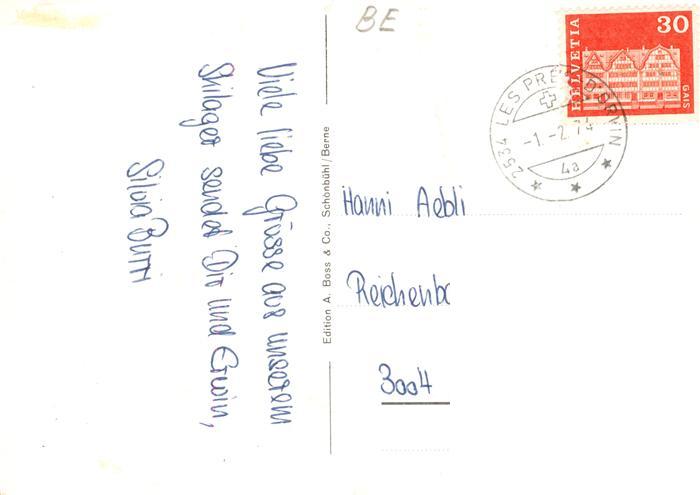 BE
30
HELVETIA
GAIS
2534 LES PRÉS D'ORVIN
-1.-2.74
4a
Viele liebe Grüsse aus unserem
Skilager sendet Dir und Erwin,
Silvia Burri
Edition A. Boss & Co., Schönbühl/Berne
Hanni Aebli
Reichenbc
3004